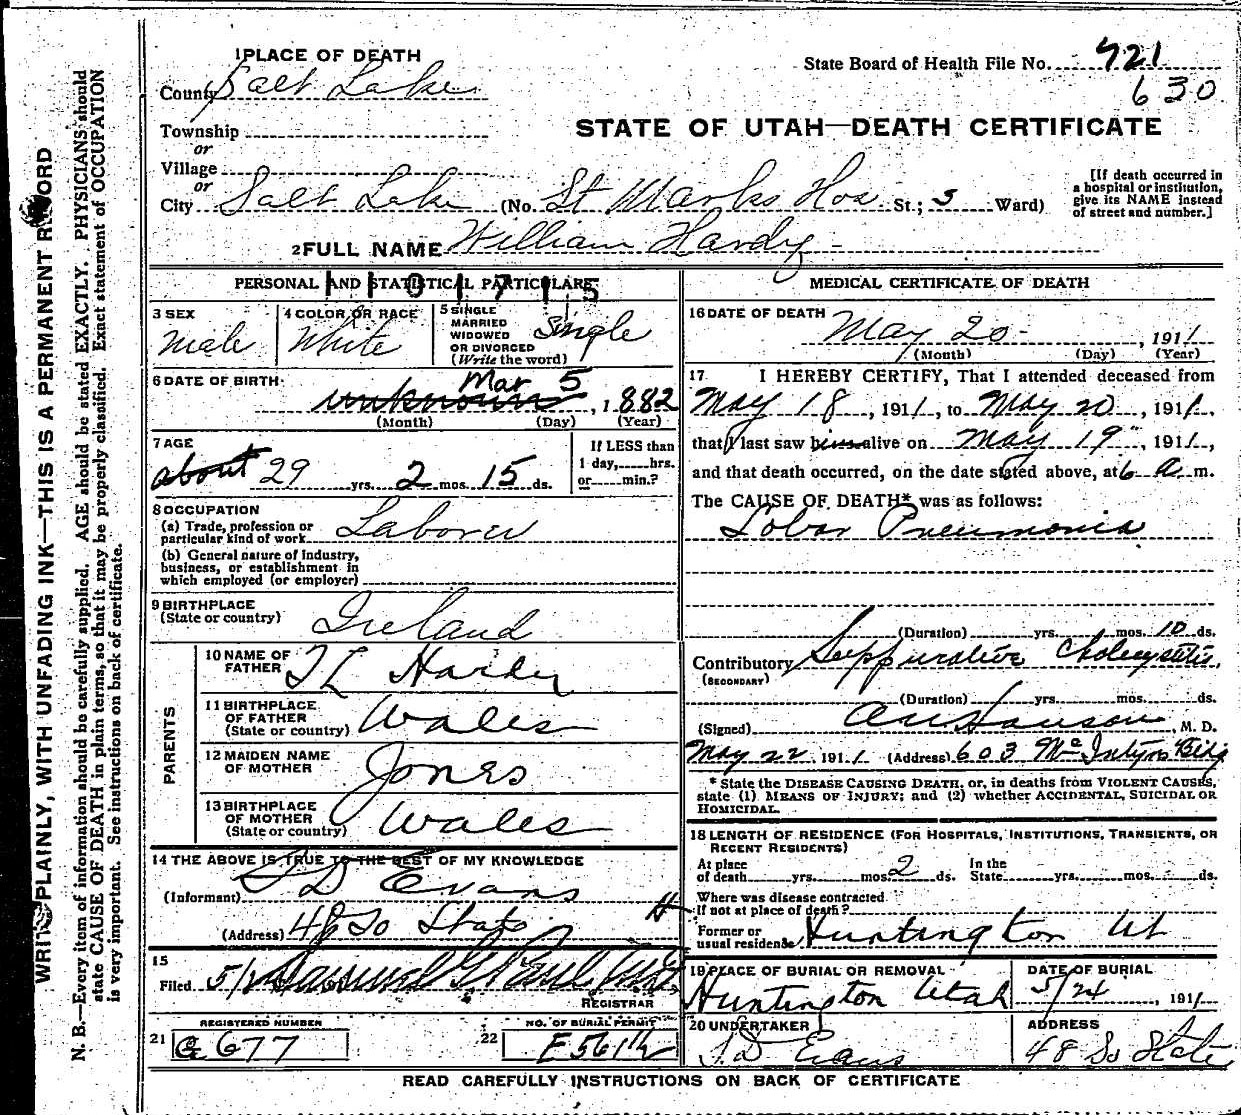 1 PLACE OF DEATH
State Board of Health File No. 721
630
County Salt Lake
STATE OF UTAH—DEATH CERTIFICATE
Township
or
Village
or
City Salt Lake (No. St Marks Hos. St.; 5 Ward)
[If death occurred in
a hospital or institution,
give its NAME instead
of street and number.]
2 FULL NAME William Hardy
PERSONAL AND STATISTICAL PARTICULARS
3 SEX
Male
4 COLOR OR RACE
White
5 SINGLE
MARRIED
WIDOWED
OR DIVORCED
(Write the word)
Single
6 DATE OF BIRTH
unknown Mar 5, 1882
(Month) (Day) (Year)
7 AGE
about 29 yrs. 2 mos. 15 ds.
If LESS than
1 day, hrs.
or min.?
8 OCCUPATION
(a) Trade, profession or
particular kind of work Laborer
(b) General nature of industry,
business, or establishment in
which employed (or employer)
9 BIRTHPLACE
(State or country) Ireland
PARENTS
10 NAME OF
FATHER T L Hardy
11 BIRTHPLACE
OF FATHER
(State or country) Wales
12 MAIDEN NAME
OF MOTHER Jones
13 BIRTHPLACE
OF MOTHER
(State or country) Wales
14 THE ABOVE IS TRUE TO THE BEST OF MY KNOWLEDGE
(Informant) S D Evans
(Address) 48 So State
15
Filed
REGISTRAR
REGISTERED NUMBER
21 677
NO. OF BURIAL PERMIT
22 E 561½
MEDICAL CERTIFICATE OF DEATH
16 DATE OF DEATH
May 20, 1911
(Month) (Day) (Year)
17 I HEREBY CERTIFY, That I attended deceased from
May 18, 1911, to May 20, 1911,
that I last saw him alive on May 19", 1911,
and that death occurred, on the date stated above, at 6 a m.
The CAUSE OF DEATH* was as follows:
Lobar Pneumonia
(Duration) yrs. mos. 10 ds.
Contributory Suppurative Cholecystitis
(SECONDARY)
(Duration) yrs. mos. ds.
(Signed) , M. D.
May 22, 1911 (Address) 603 McIntyre Bldg
* State the DISEASE CAUSING DEATH, or, in deaths from VIOLENT CAUSES,
state (1) MEANS OF INJURY; and (2) whether ACCIDENTAL, SUICIDAL OR
HOMICIDAL.
18 LENGTH OF RESIDENCE (FOR HOSPITALS, INSTITUTIONS, TRANSIENTS, OR
RECENT RESIDENTS)
At place
of death yrs. mos. 2 ds.
In the
State yrs. mos. ds.
Where was disease contracted
If not at place of death?
Former or
usual residence Huntington Ut
19 PLACE OF BURIAL OR REMOVAL
Huntington Utah
DATE OF BURIAL
5/24, 1911
20 UNDERTAKER
S. D Evans
ADDRESS
48 So State
READ CAREFULLY INSTRUCTIONS ON BACK OF CERTIFICATE
WRITE PLAINLY, WITH UNFADING INK—THIS IS A PERMANENT RECORD
N. B.—Every item of information should be carefully supplied. AGE should be stated EXACTLY. PHYSICIANS should
state CAUSE OF DEATH in plain terms, so that it may be properly classified. Exact statement of OCCUPATION
is very important. See instructions on back of certificate.